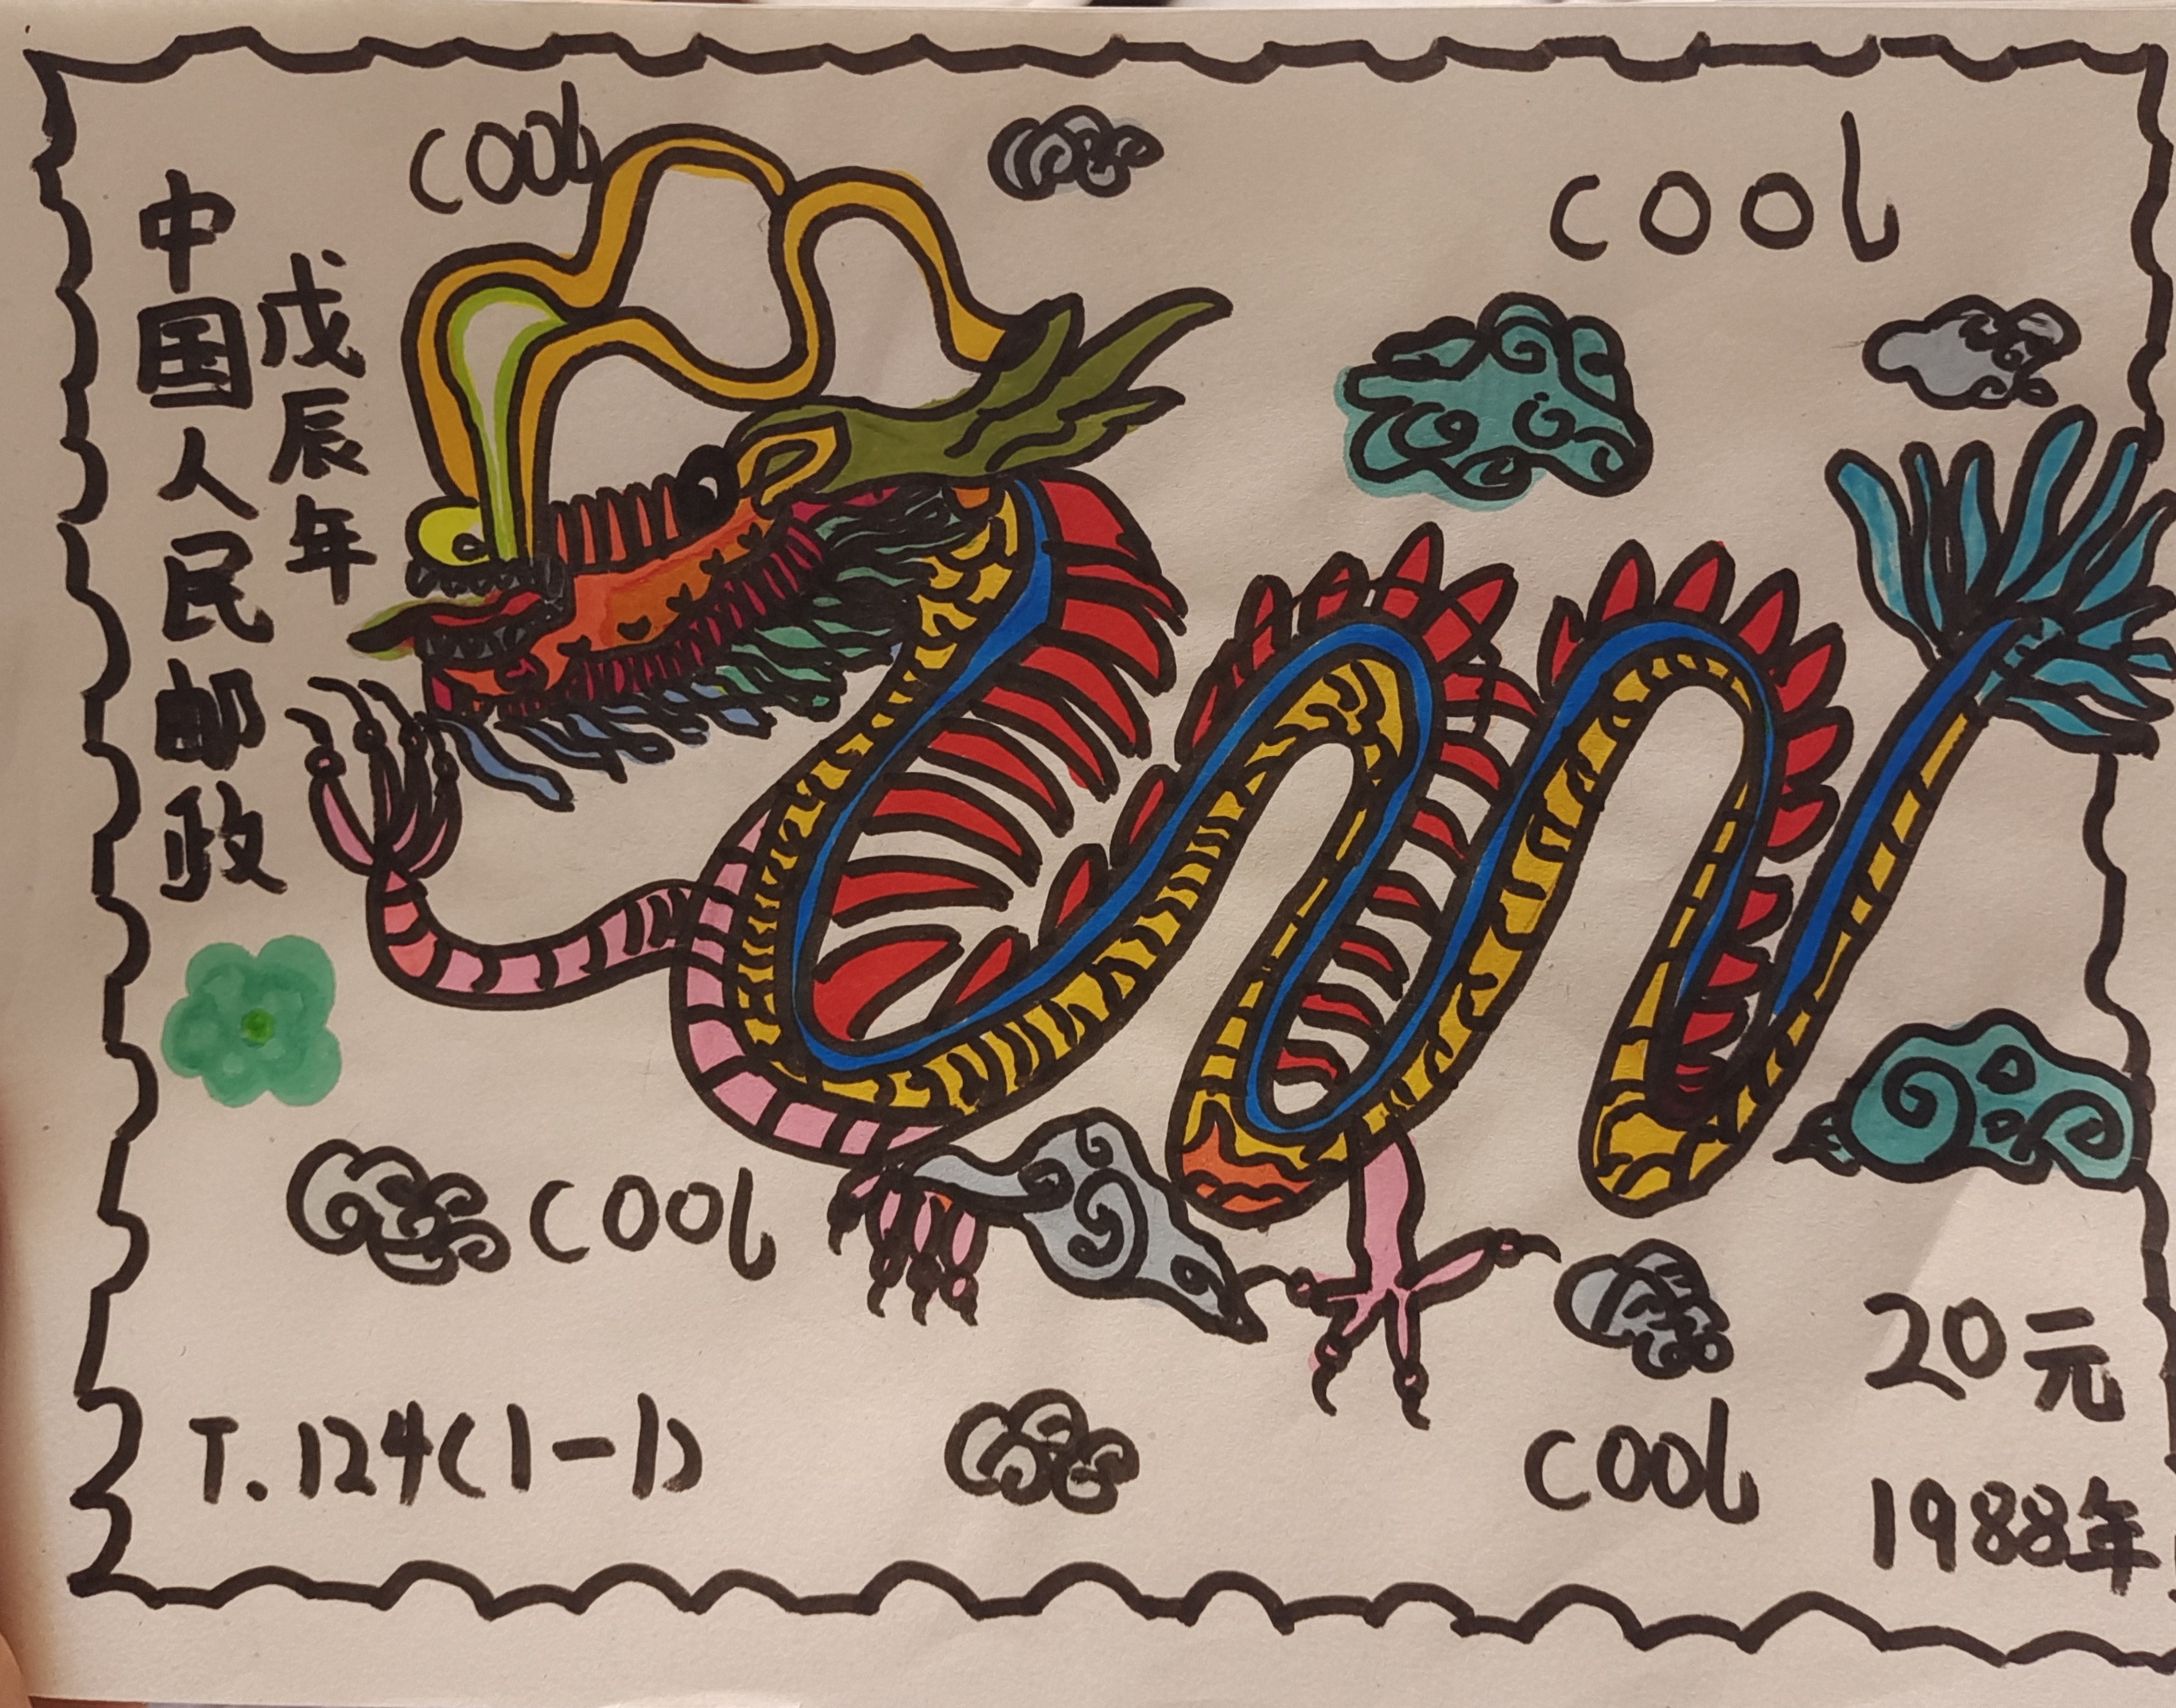 中国人民邮政
戊辰年
cool
cool
cool
T.124(1-1)
cool
20元
1988年